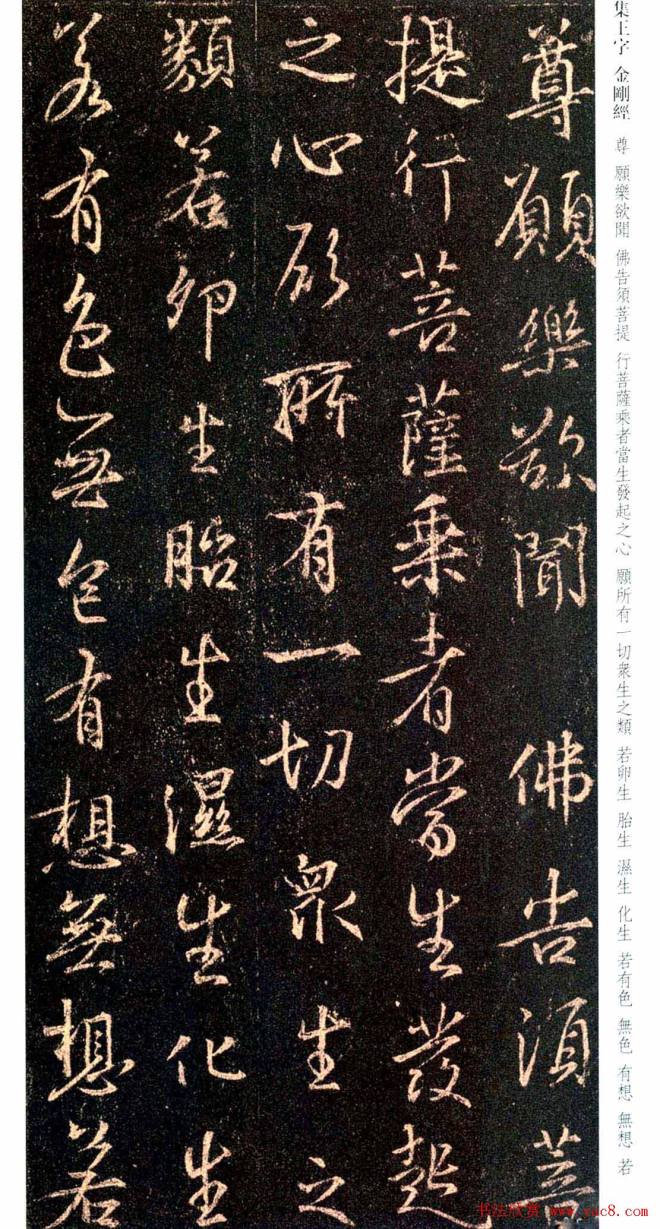 集王字 金剛經 尊 願樂欲聞 佛告須菩提 行菩薩乘者當生發起之心 願所有一切衆生之類 若卵生 胎生 濕生 化生 若有色 無色 有想 無想 若
尊願樂欲聞 佛告須菩
提行菩薩乘者當生發起
之心願所有一切衆生之
類若卵生胎生濕生化生
若有色無色有想無想若
书法欣赏 www.yac8.com